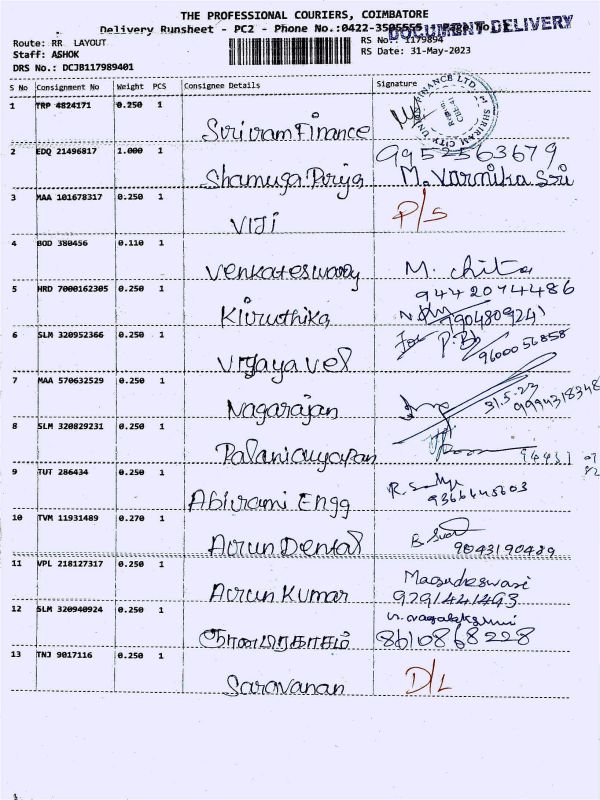 THE PROFESSIONAL COURIERS, COIMBATORE
Delivery Runsheet - PC2 - Phone No.:0422-3505555
DOCUMENT DELIVERY
Route: RR LAYOUT
RS No.: 1179894
Staff: ASHOK
RS Date: 31-May-2023
DRS No.: DCJB117989401
S No Consignment No Weight PCS Consignee Details Signature
1 TRP 4824171 0.250 1
Sriram Finance
2 EDQ 21496817 1.000 1 9952563679
Shamuga Piriya M. Varnika Sri
3 MAA 101678317 0.250 1 P/S
VIJI
4 BOD 380456 0.110 1
Venkateswaray M. chita
5 HRD 7000162305 0.250 1 9442074486
Kiruthika 9904809241
6 SLM 320952366 0.250 1
Vijayavel 9600056858
7 MAA 570632529 0.250 1 31.5.23
Nagarajan 9994318348
8 SLM 320829231 0.250 1
Palaniayapan 94431
9 TUT 286434 0.250 1
Abirami Engg 9366445603
10 TVM 11931489 0.270 1
Arun Dental 9043190489
11 VPL 218127317 0.250 1
Arun Kumar 9291441493
12 SLM 320940924 0.250 1
8610868228
13 TNJ 9017116 0.250 1 D/L
Saravanan